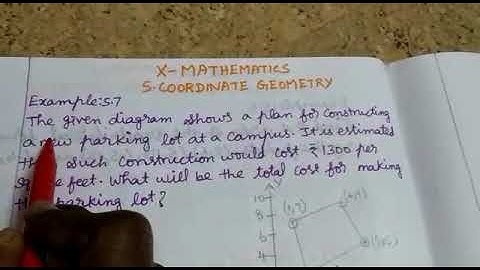 X-MATHEMATICS
5. COORDINATE GEOMETRY
Example:5.7
The given diagram shows a plan for constructing
a new parking lot at a campus. It is estimated
such construction would cost ₹1300 per
feet. What will be the total cost for making
parking lot?
10
8
6
4